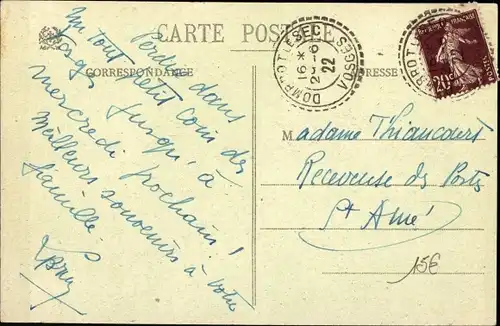 CARTE POSTALE
CORRESPONDANCE
ADRESSE
DOMBROT LE SEC VOSGES
16 * 6
22
20c
Perdue dans
un tout petit coin des
Vosges jusqu'à
mercredi prochain!
Meilleurs souvenirs à votre
famille
Madame Thiancourt
Receveuse des Postes
St Amé
15E